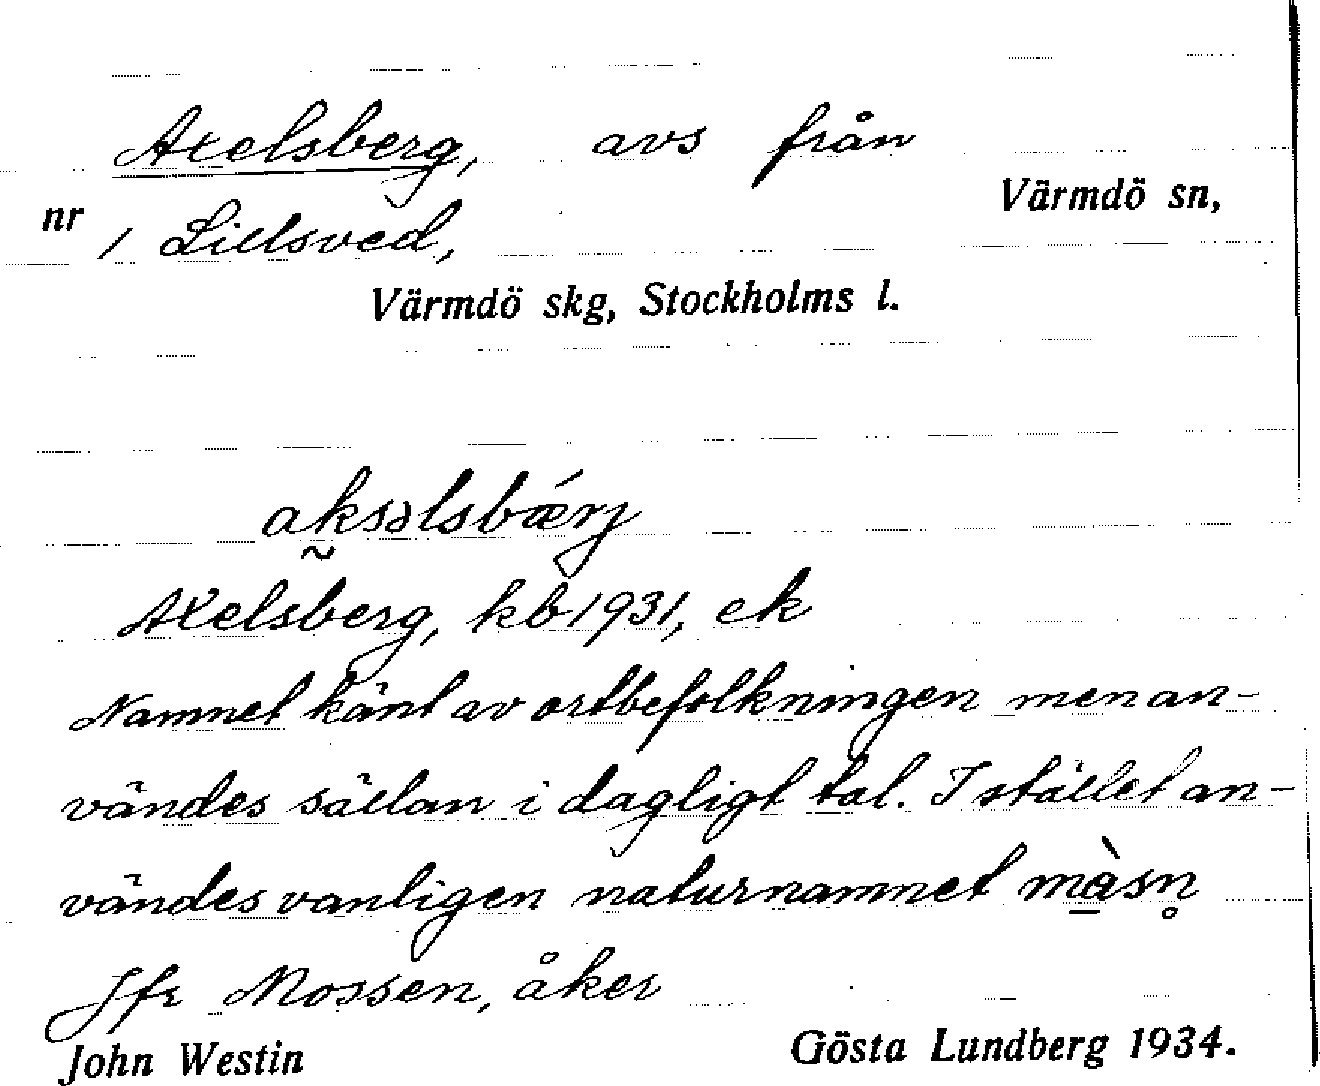 Axelsberg, avs från
Värmdö sn,
nr 1 Lillsved,
Värmdö skg, Stockholms l.
aksəlsbǽrj
Axelsberg, kb 1931, ek
Namnet känt av ortbefolkningen men an-
vändes sällan i dagligt tal. I stället an-
vändes vanligen naturnamnet màsn̥
Jfr Mossen, åker
John Westin Gösta Lundberg 1934.